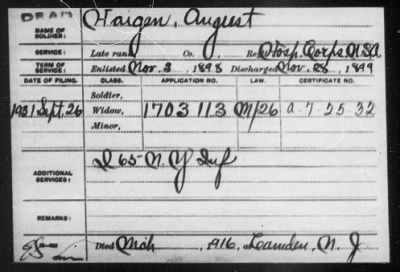 DEAD
NAME OF SOLDIER: Haigen, August
SERVICE: Late rank Co. Re Hosp. Corps U.S.A.
TERM OF SERVICE: Enlisted Nov. 3 1898 Discharged Nov. 28, 1899
DATE OF FILING. CLASS. APPLICATION NO. LAW. CERTIFICATE NO.
Soldier,
1931 Sept. 26 Widow, 1703 113 M/26 a-7-25 32
Minor,
ADDITIONAL SERVICES: D 65 N.Y. Inf
REMARKS:
Died Mch , 1916, at Camden, N. J.